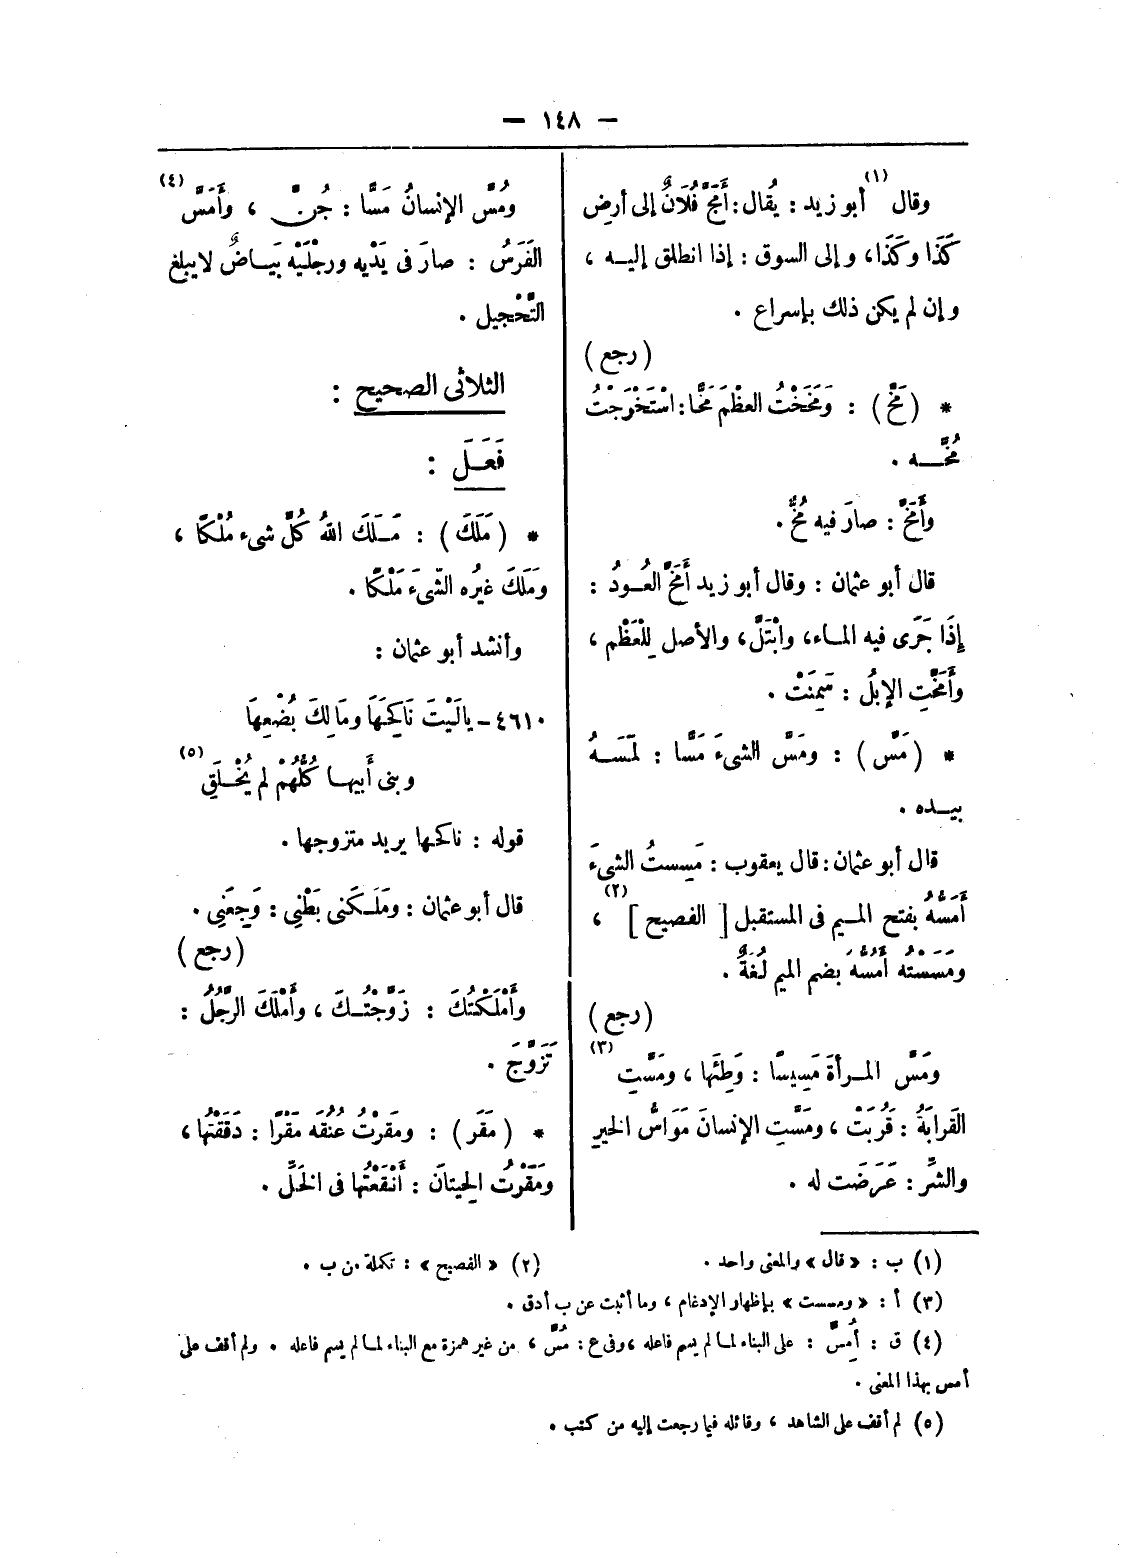 — ١٤٨ —
وقال (١) أبو زيد : يُقال : أَمَجَّ فُلَانٌ إلى أرضِ
كَذَا وكَذَا، وإلى السوق : إذا انطلق إليه ،
وإن لم يكن ذلك بإسراع .
(رجع)
* (مَخَّ) : ومَخَخْتُ العظْمَ مَخًّا : اسْتَخْرَجْتُ
مُخَّه .
وأَمَخَّ : صارَ فيه مُخٌّ .
قال أبو عثمان : وقال أبو زيد أَمَخَّ العُودُ :
إِذَا جَرَى فيه الماء، وابْتَلَّ، والأصل لِلْعَظْم ،
وأَمَخَّتِ الإبِلُ : سَمِنَتْ .
* (مَسَّ) : ومَسَّ الشيءَ مَسًّا : لَمَسَهُ
بيده .
قال أبو عثمان : قال يعقوب : مَسِستُ الشيءَ
أَمَسُّهُ بفتح الميم في المستقبل [ الفصيح ] (٢) ،
ومَسَسْتُه أَمُسُّهُ بضم الميم لُغَةٌ .
(رجع)
ومَسَّ المرأةَ مَسِيسًا : وَطِئَها ، ومَسَّتِ (٣)
القَرابَةُ : قَرُبَتْ ، ومَسَّتِ الإنسانَ مَوَاسُّ الخيرِ
والشرِّ : عَرَضَت له .
ومُسَّ الإنسانُ مَسًّا : جُنَّ ، وأَمَسَّ (٤)
الفَرَسُ : صارَ فى يَدْيه ورجْلَيْه بَيَاضٌ لايبلغ
التَّحْجِيل .
الثلاثى الصحيح :
فَعَلَ :
* (مَلَكَ) : مَلَكَ اللهُ كُلَّ شىء مُلْكًا ،
ومَلَكَ غيرُه الشّىءَ مَلْكًا .
وأنشد أبو عثمان :
٤٦١٠ - يالَيْتَ نَاكِحَهَا ومَالِكَ بُضْعِهَا
وبنى أَبيها كُلُّهُمْ لم يُخْلَقِ (٥)
قوله : ناكحها يريد متزوجها .
قال أبو عثمان : ومَلَكَنى بَطْنِي : وَجِعَنِي .
(رجع)
وأَمْلَكْتُكَ : زَوَّجْتُكَ ، وأَمْلَكَ الرَّجُلُ :
تَزَوَّجَ .
* (مَقَر) : ومَقَرْتُ عنُقَه مَقْرًا : دَقَقْتُها ،
ومَقَرْتُ الحِيتانَ : أَنْقَعْتُها فى الخَلِّ .
(١) ب : « قال » والمعنى واحد .
(٢) « الفصيح » : تكملة من ب .
(٣) أ : « ومسست » بإظهار الإدغام ، وما أثبت عن ب أدق .
(٤) ق : أُمِسَّ : على البناء لما لم يسم فاعله ، وفى ع : مُسَّ ، من غير همزة مع البناء لما لم يسم فاعله . ولم أقف على
أمس بهذا المعنى .
(٥) لم أقف على الشاهد ، وقائله فيما رجعت إليه من كتب .